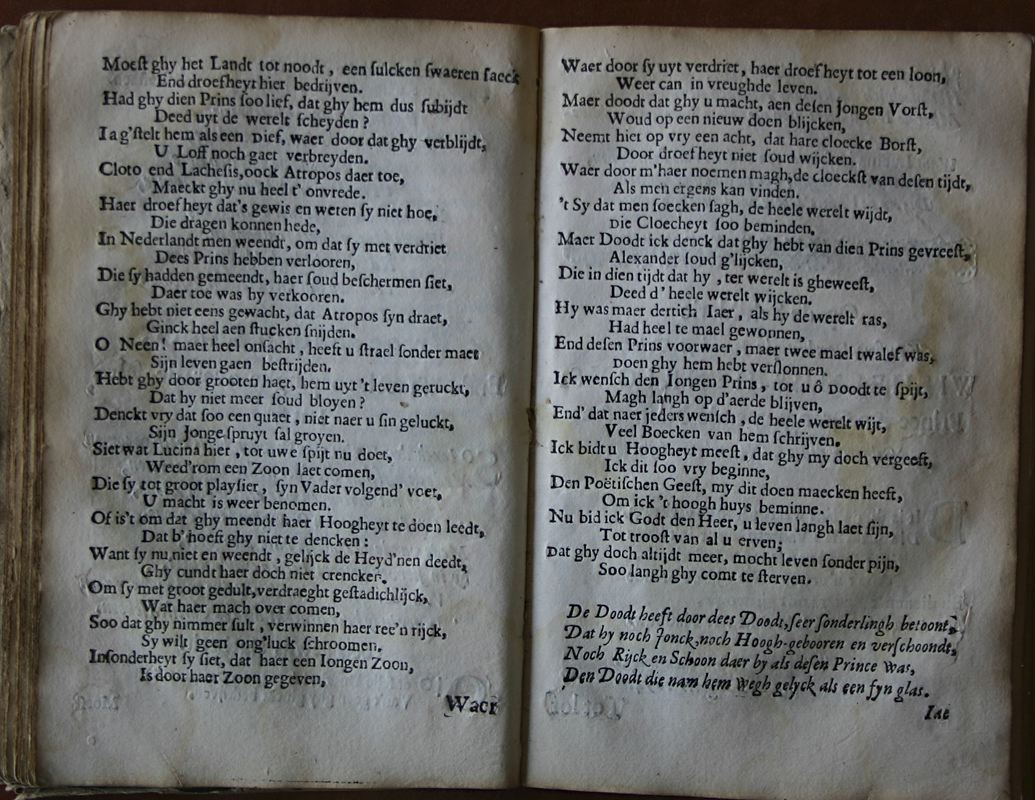 Moeſt ghy het Landt tot noodt, een ſulcken ſwaeren ſaeck
End droefheyt hier bedrijven.
Had ghy dien Prins ſoo lief, dat ghy hem dus ſubijdt
Deed uyt de werelt ſcheyden?
Ia g'ſtelt hem als een Dief, waer door dat ghy verblijdt,
U Loff noch gaet verbreyden.
Cloto end Lacheſis, oock Atropos daer toe,
Maeckt ghy nu heel t' onvrede.
Haer droefheyt dat's gewis en weten ſy niet hoe,
Die dragen konnen hede,
In Nederlandt men weendt, om dat ſy met verdriet
Dees Prins hebben verlooren,
Die ſy hadden gemeendt, haer ſoud beſchermen ſiet,
Daer toe was hy verkooren.
Ghy hebt niet eens gewacht, dat Atropos ſyn draet,
Ginck heel aen ſtucken ſnijden.
O Neen! maer heel onſacht, heeft u ſtrael ſonder maet
Sijn leven gaen beſtrijden.
Hebt ghy door grooten haet, hem uyt 't leven geruckt,
Dat hy niet meer ſoud bloyen?
Denckt vry dat ſoo een quaet, niet naer u ſin geluckt,
Sijn Jonge ſpruyt ſal groyen.
Siet wat Lucina hier, tot uwe ſpijt nu doet,
Weed'rom een Zoon laet comen,
Die ſy tot groot playſier, ſyn Vader volgend' voet,
U macht is weer benomen.
Of is't om dat ghy meendt haer Hoogheyt te doen leedt,
Dat b'hoeft ghy niet te dencken:
Want ſy nu niet en weendt, gelijck de Heyd'nen deedt,
Ghy cundt haer doch niet crencken.
Om ſy met groot gedult, verdraeght geſtadichlijck,
Wat haer mach over comen,
Soo dat ghy nimmer ſult, verwinnen haer ree'n rijck,
Sy wilt geen ong'luck ſchroomen.
Inſonderheyt ſy ſiet, dat haer een Iongen Zoon,
Is door haer Zoon gegeven,
Waer
Waer door ſy uyt verdriet, haer droefheyt tot een loon,
Weer can in vreughde leven.
Maer doodt dat ghy u macht, aen deſen Jongen Vorſt,
Woud op een nieuw doen blijcken,
Neemt hier op vry een acht, dat hare cloecke Borſt,
Door droefheyt niet ſoud wijcken.
Waer door m'haer noemen magh, de cloeckſt van deſen tijdt,
Als men ergens kan vinden.
't Sy dat men ſoecken ſagh, de heele werelt wijdt,
Die Cloecheyt ſoo beminden.
Maer Doodt ick denck dat ghy hebt van dien Prins gevreeſt,
Alexander ſoud g'lijcken,
Die in dien tijdt dat hy, ter werelt is gheweeſt,
Deed d' heele werelt wijcken.
Hy was maer dertich Iaer, als hy de werelt ras,
Had heel te mael gewonnen,
End deſen Prins voorwaer, maer twee mael twalef was,
Doen ghy hem hebt verſlonnen.
Ick wenſch den Jongen Prins, tot u ô Doodt te ſpijt,
Magh langh op d'aerde blijven,
End' dat naer jeders wenſch, de heele werelt wijt,
Veel Boecken van hem ſchrijven.
Ick bidt u Hoogheyt meeſt, dat ghy my doch vergeeft,
Ick dit ſoo vry beginne,
Den Poëtiſchen Geeſt, my dit doen maecken heeft,
Om ick 't hoogh huys beminne.
Nu bid ick Godt den Heer, u leven langh laet ſijn,
Tot trooſt van al u erven;
Dat ghy doch altijdt meer, mocht leven ſonder pijn,
Soo langh ghy comt te ſterven.
De Doodt heeft door dees Doodt, ſeer ſonderlingh betoont,
Dat hy noch Jonck, noch Hoogh-gebooren en verſchoondt,
Noch Rijck en Schoon daer by als deſen Prince was,
Den Doodt die nam hem wegh gelyck als een ſyn glas.
Iae